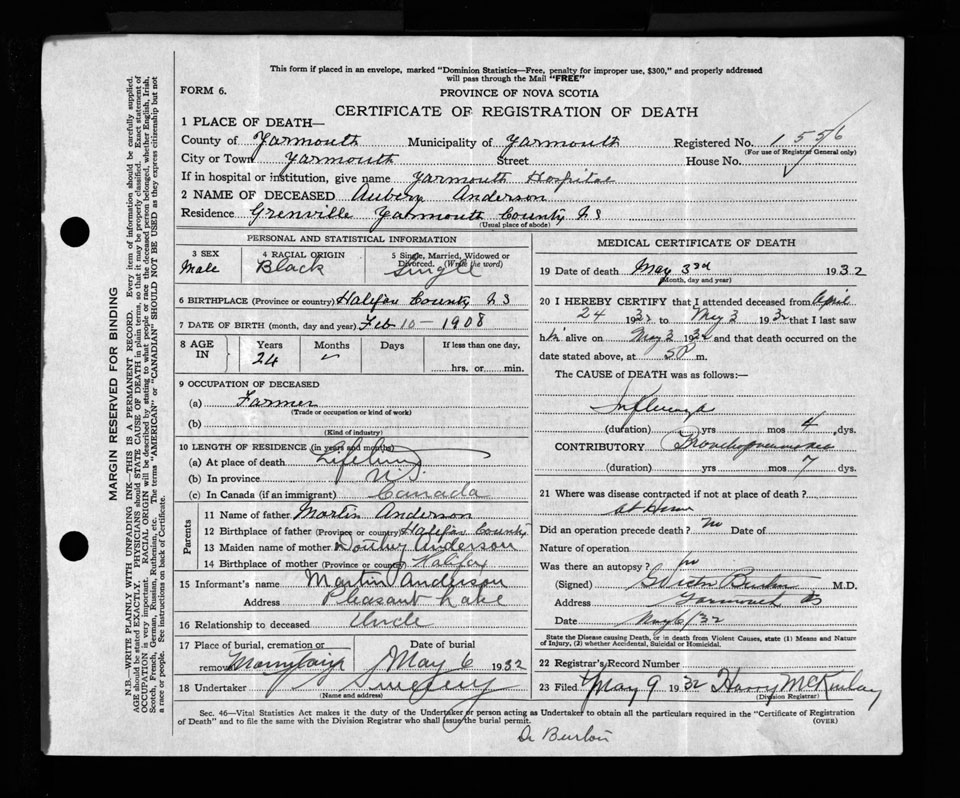 This form if placed in an envelope, marked "Dominion Statistics—Free, penalty for improper use, $300," and properly addressed
will pass through the Mail "FREE"
FORM 6.
PROVINCE OF NOVA SCOTIA
CERTIFICATE OF REGISTRATION OF DEATH
1 PLACE OF DEATH—
County of Yarmouth Municipality of Yarmouth Registered No. 1556
(For use of Registrar General only)
City or Town Yarmouth Street House No.
If in hospital or institution, give name Yarmouth Hospital
2 NAME OF DECEASED Aubery Anderson
Residence Grenville Yarmouth County N S
(Usual place of abode)
PERSONAL AND STATISTICAL INFORMATION
3 SEX 4 RACIAL ORIGIN 5 Single, Married, Widowed or
Divorced. (Write the word)
Male Black Single
6 BIRTHPLACE (Province or country) Halifax County N S
7 DATE OF BIRTH (month, day and year) Feb 10 - 1908
8 AGE IN Years Months Days If less than one day,
24
hrs. or min.
9 OCCUPATION OF DECEASED
(a) Farmer
(Trade or occupation or kind of work)
(b)
(Kind of industry)
10 LENGTH OF RESIDENCE (in years and months)
(a) At place of death Lifetime
(b) In province N.S
(c) In Canada (if an immigrant) Canada
Parents
11 Name of father Martin Anderson
12 Birthplace of father (Province or country) Halifax County
13 Maiden name of mother Anderson
14 Birthplace of mother (Province or country) Halifax
15 Informant's name Martin Anderson
Address Pleasant Lake
16 Relationship to deceased Uncle
17 Place of burial, cremation or Date of burial
removal May 6 1932
18 Undertaker Sweeny
(Name and address)
MEDICAL CERTIFICATE OF DEATH
19 Date of death May 3rd 1932
(Month, day and year)
20 I HEREBY CERTIFY that I attended deceased from April
24 1932 to May 3 1932 that I last saw
him alive on May 3 1932 and that death occurred on the
date stated above, at 5 P m.
The CAUSE of DEATH was as follows:—
Influenza
(duration) yrs mos 4 dys.
CONTRIBUTORY Bronchopneumonia
(duration) yrs mos 7 dys
21 Where was disease contracted if not at place of death?
at Home
Did an operation precede death? No Date of
Nature of operation
Was there an autopsy? no
(Signed) Burton M.D.
Address Yarmouth NS
Date May 6/32
State the Disease causing Death, or in death from Violent Causes, state (1) Means and Nature
of Injury, (2) whether Accidental, Suicidal or Homicidal.
22 Registrar's Record Number
23 Filed May 9 1932 Harry McKinlay
(Division Registrar)
Sec. 46—Vital Statistics Act makes it the duty of the Undertaker or person acting as Undertaker to obtain all the particulars required in the "Certificate of Registration
of Death" and to file the same with the Division Registrar who shall issue the burial permit.
(OVER)
Dr Burton
MARGIN RESERVED FOR BINDING
N.B.—WRITE PLAINLY WITH UNFADING INK—THIS IS A PERMANENT RECORD. Every item of information should be carefully supplied.
AGE should be stated EXACTLY. PHYSICIANS should STATE CAUSE OF DEATH in plain terms, so that it may be properly classified. Exact statement of
OCCUPATION is very important. RACIAL ORIGIN will be described by stating to what people or race the deceased person belonged, whether English, Irish,
Scotch, French, German, Russian, Ruthenian, etc. The terms "AMERICAN" or "CANADIAN" SHOULD NOT BE USED as they express citizenship but not
a race or people. See instructions on back of Certificate.